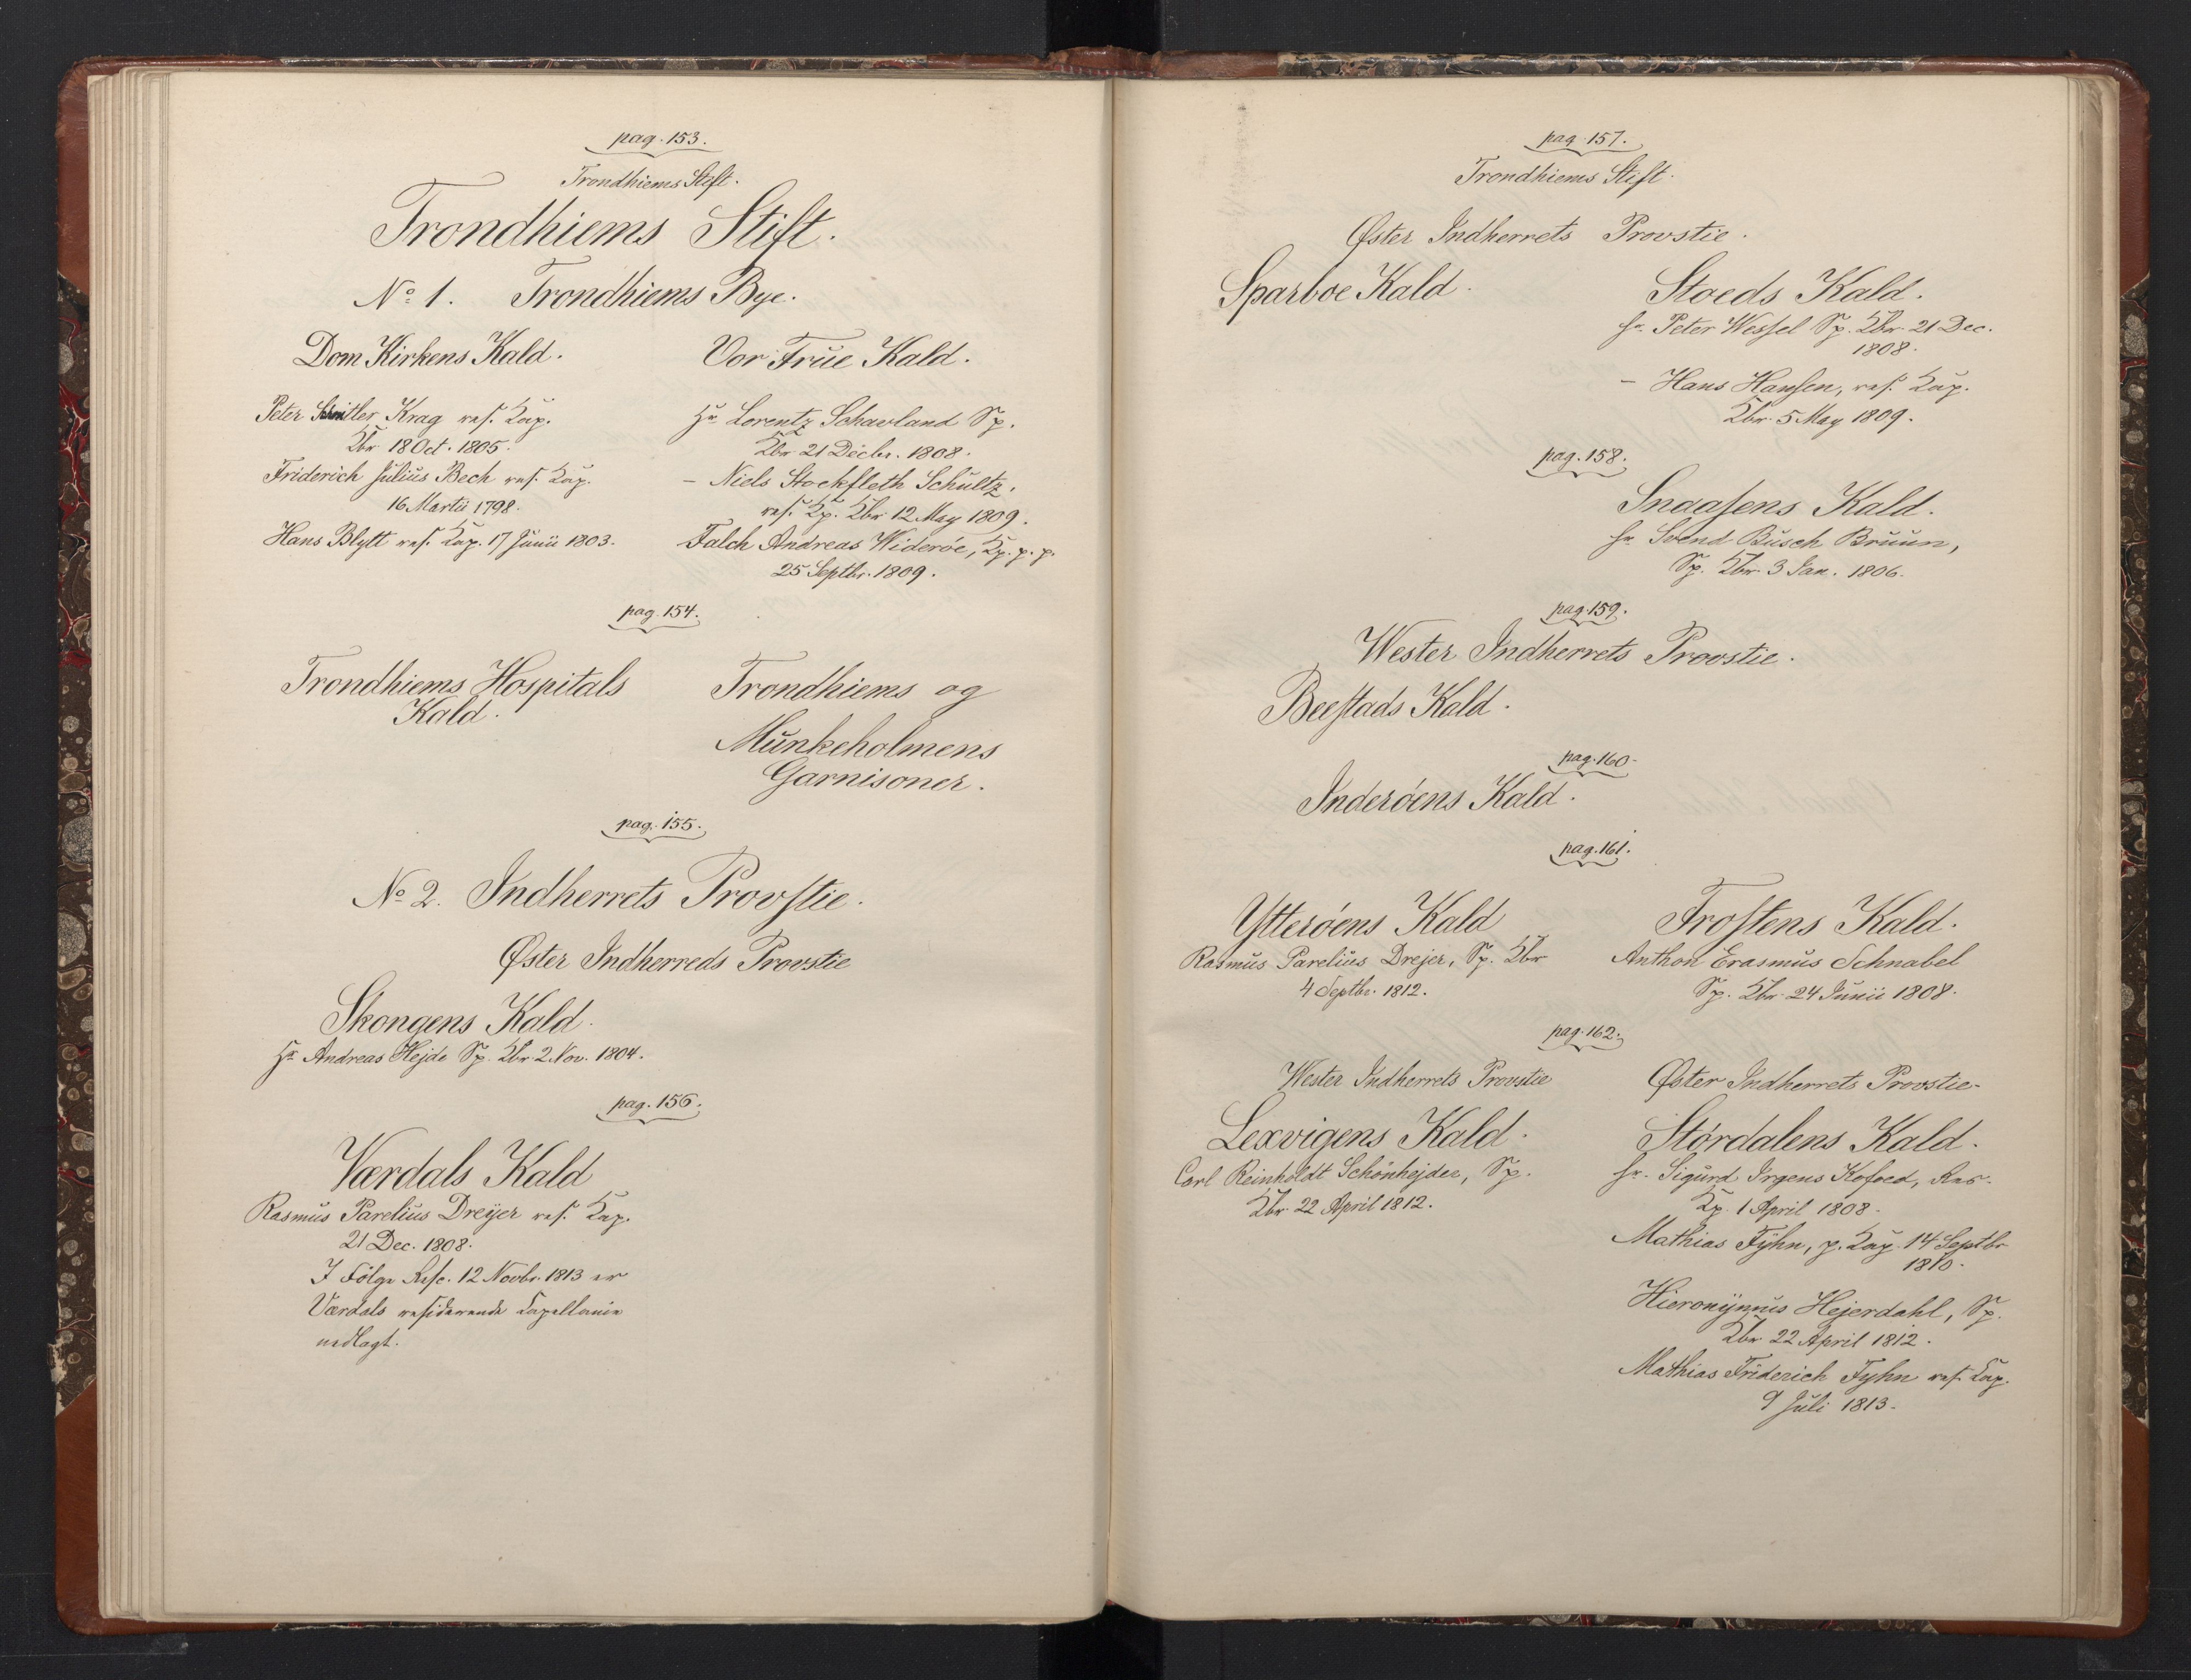 pag. 153.
Trondhiems Stift.
Trondhiems Stift.
No 1. Trondhiems Bye.
Dom Kirkens Kald.
Peter Schnitler Krag res. Cap.
Kbr 18 Oct. 1805.
Friderich Julius Bech res. Cap.
16 Martii 1798.
Hans Blytt res. Cap. 17 Junii 1803.
Vor Frue Kald.
Hr Lorentz Schavland Sp.
Kbr 21 Decbr. 1808.
– Niels Stockfleth Schultz,
res. Cp. Kbr 12 May 1809.
Falch Andreas Widerøe, Cp. p. p.
25 Septbr. 1809.
pag. 154.
Trondhiems Hospitals
Kald.
Trondhiems og
Munkeholmens
Garnisoner.
pag. 155.
No 2. Indherrets Provstie.
Øster Indherreds Provstie
Skongens Kald.
Hr Andreas Hejde Sp. Kbr 2 Nov. 1804.
pag. 156.
Værdals Kald
Rasmus Parelius Dreyer res. Cap.
21 Dec. 1808.
I Følge Resc. 12 Novbr. 1813 er
Værdals residerende Capellanie
nedlagt.
pag. 157.
Trondhiems Stift.
Øster Indherrets Provstie.
Sparboe Kald.
Stoeds Kald.
Hr. Peter Wessel Sp. Kbr 21 Dec.
1808.
– Hans Hansen, res. Cap.
Kbr 5 May 1809.
pag. 158.
Snaasens Kald.
Hr Svend Busch Bruun,
Sp. Kbr 3 Jan. 1806.
pag. 159.
Wester Indherrets Provstie.
Beestads Kald.
pag. 160.
Inderøens Kald.
pag. 161.
Ytterøens Kald
Rasmus Parelius Drejer, Sp. Kbr
4 Septbr. 1812.
Frostens Kald.
Anthon Erasmus Schnabel
Sp. Kbr 24 Junii 1808.
pag. 162.
Wester Indherrets Provstie
Lexvigens Kald.
Carl Reinholdt Schønhejder, Sp.
Kbr. 22 April 1812.
Øster Indherrets Provstie.
Størdalens Kald.
Hr. Sigurd Irgens Kofoed, Res.
Cp. 1 April 1808.
Mathias Fyhn, p. Cap. 14 Septbr
1810.
Hieronymus Hejerdahl, Sp.
Kbr 22 April 1812.
Mathias Friderich Fyhn res. Cap.
9 Juli 1813.